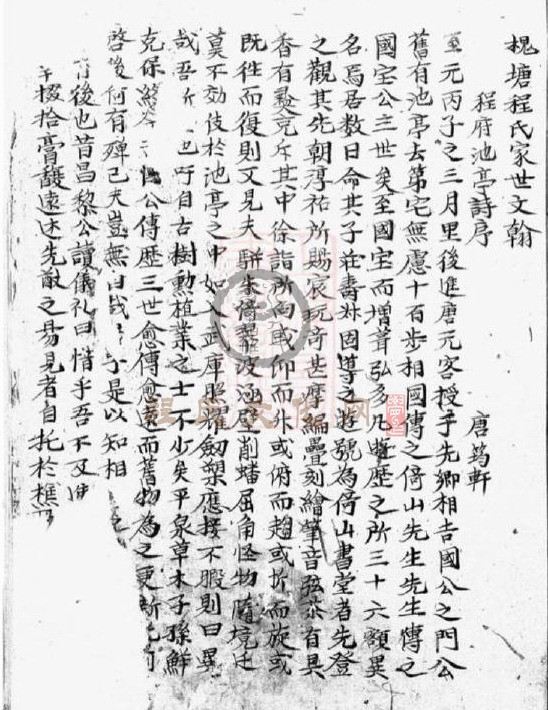 槐塘程氏家世文翰
程府池亭詩序　唐筠軒
至元丙子之三月里後進唐元客授于先鄉相吉國公之門公
舊有池亭去第宅無慮十百步相國傳之倚山先生先生傳之
國宝公三世矣至國宝而增葺弘多凡游歷之所三十六額異
名焉居數日命其子莊壽井因導之遊號為倚山書堂者先登
之觀其先朝淳祐所賜宸玩奇甚摩編疊刻繪筆音弦茶有具
香有爇充斥其中徐詣所向或仰而升或俯而趨或折而旋或
既徃而復則又見夫駢朱倚翠波涵壁削蟠屈角怪物隨境迁
莫不効伎於池亭之中如入武庫照耀劒槊應接不暇則曰異
哉吾 也吁自古樹勲植業之士不少矣平泉草木子孫鮮
克保 公傳歷三世愈傳愈 而舊物為之更新
啓後何有殫已夫豈無 是以知相
後也昔昌黎公讀儀礼曰惜乎吾不及
掇拾膏馥遠述先猷之易見者自托於樵